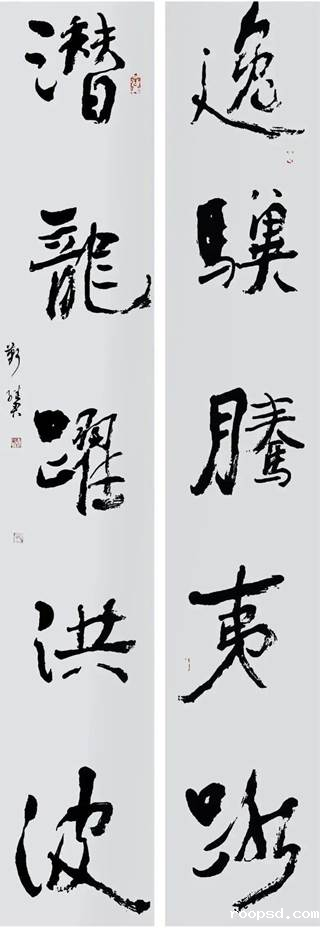 逸驥騰夷路
潜龍躍洪波
roopsd.com